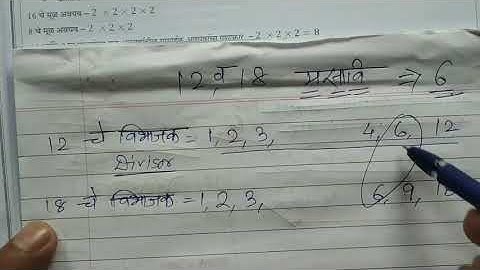 16 चे मूळ अवयव – 2 × 2 × 2 × 2
8 चे मूळ अवयव – 2 × 2 × 2
– 2 × 2 × 2 = 8
12 व 18 मसावि ⇒ 6
12 चे विभाजक = 1, 2, 3, 4, 6, 12
Divisor
18 चे विभाजक = 1, 2, 3, 6, 9, 18